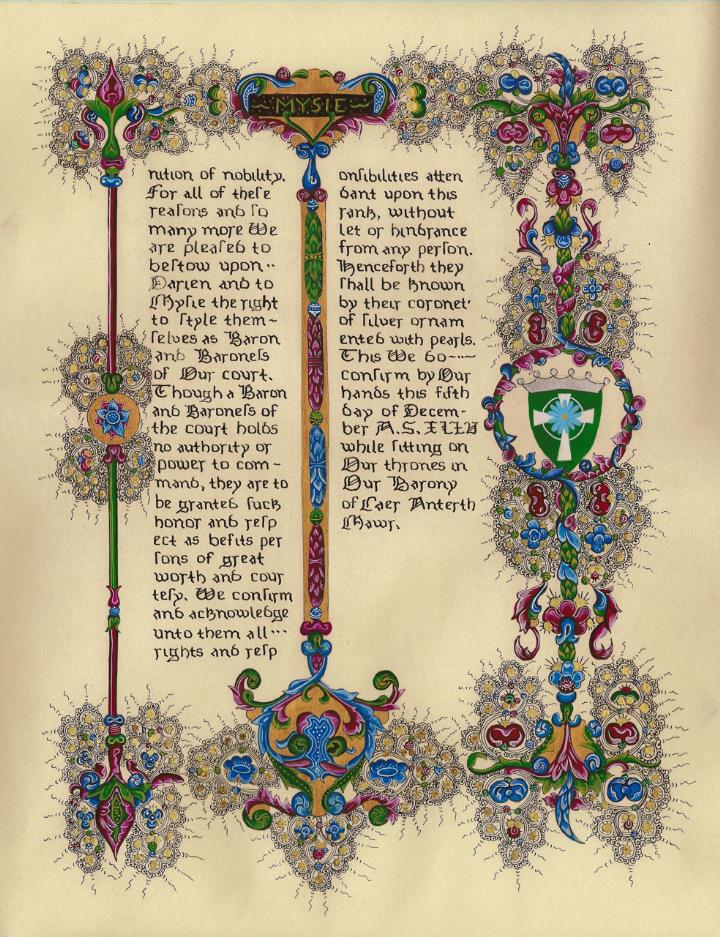 MYSIE
nition of nobility.
For all of theſe
reaſons and ſo
many more We
are pleaſed to
beſtow upon··
Darien and to
Myſie the right
to ſtyle them~
ſelves as Baron
and Baroneſs
of Our court.
Though a Baron
and Baroneſs of
the court holds
no authority or
power to com~
mand, they are to
be granted ſuch
honor and reſp
ect as befits per
ſons of great
worth and cour
teſy. We confirm
and acknowledge
unto them all···
rights and reſp
onſibilities atten
dant upon this
rank, without
let or hindrance
from any perſon.
Henceforth they
ſhall be known
by their coronet
of ſilver ornam
ented with pearls.
This We do~~~
confirm by Our
hands this fifth
day of Decem-
ber A.S. XLIV
while ſitting on
Our thrones in
Our Barony
of Caer Anterth
Mawr.